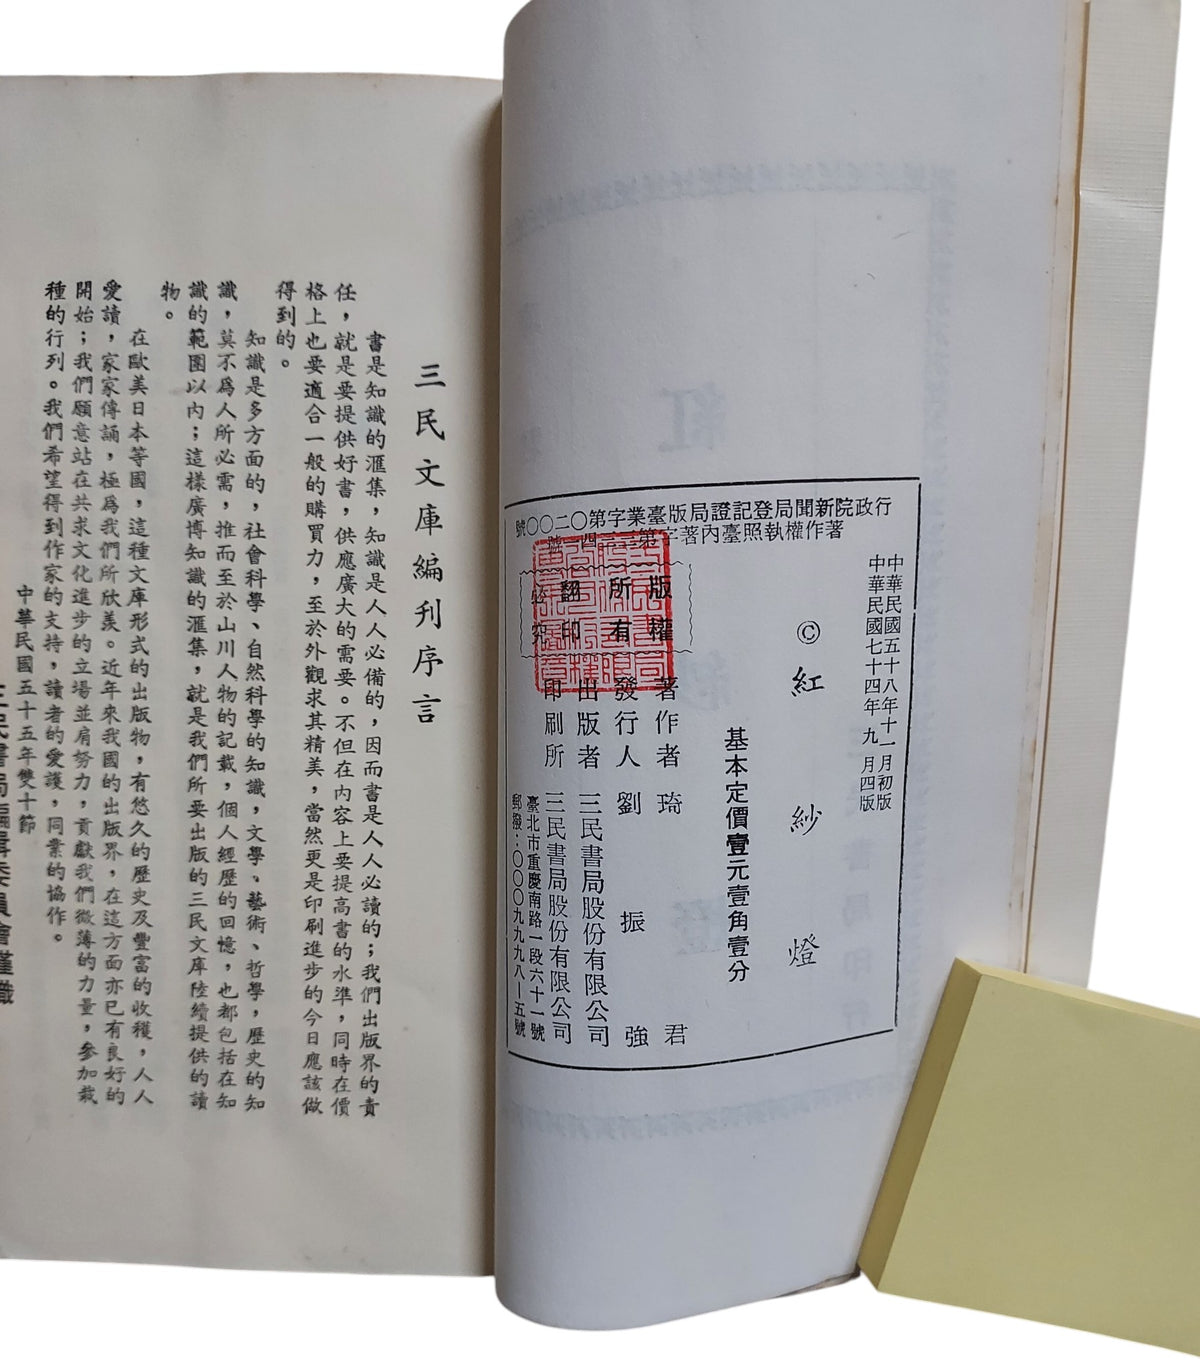 行政院新聞局登記證局版臺業字第〇二〇〇號
著作權執照臺內著字第
中華民國五十八年十一月初版
中華民國七十四年九月四版
©紅紗燈
基本定價壹元壹角壹分
版權所有
翻印必究
著作者 琦君
發行人 劉振強
出版者 三民書局股份有限公司
印刷所 三民書局股份有限公司
臺北市重慶南路一段六十一號
郵撥：〇〇〇九九九八—五號
三民文庫編刊序言
書是知識的滙集，知識是人人必備的，因而書是人人必讀的；我們出版界的責
任，就是要提供好書，供應廣大的需要。不但在內容上要提高書的水準，同時在價
格上也要適合一般的購買力，至於外觀求其精美，當然更是印刷進步的今日應該做
得到的。
知識是多方面的，社會科學、自然科學的知識，文學、藝術、哲學，歷史的知
識，莫不爲人所必需，推而至於山川人物的記載，個人經歷的回憶，也都包括在知
識的範圍以內；這樣廣博知識的滙集，就是我們所要出版的三民文庫陸續提供的讀
物。
在歐美日本等國，這種文庫形式的出版物，有悠久的歷史及豐富的收穫，人人
愛讀，家家傳誦，極爲我們所欣羨。近年來我國的出版界，在這方面亦已有良好的
開始；我們願意站在共求文化進步的立場並肩努力，貢獻我們微薄的力量，參加栽
種的行列。我們希望得到作家的支持，讀者的愛護，同業的協作。
中華民國五十五年雙十節
三民書局編輯委員會謹識